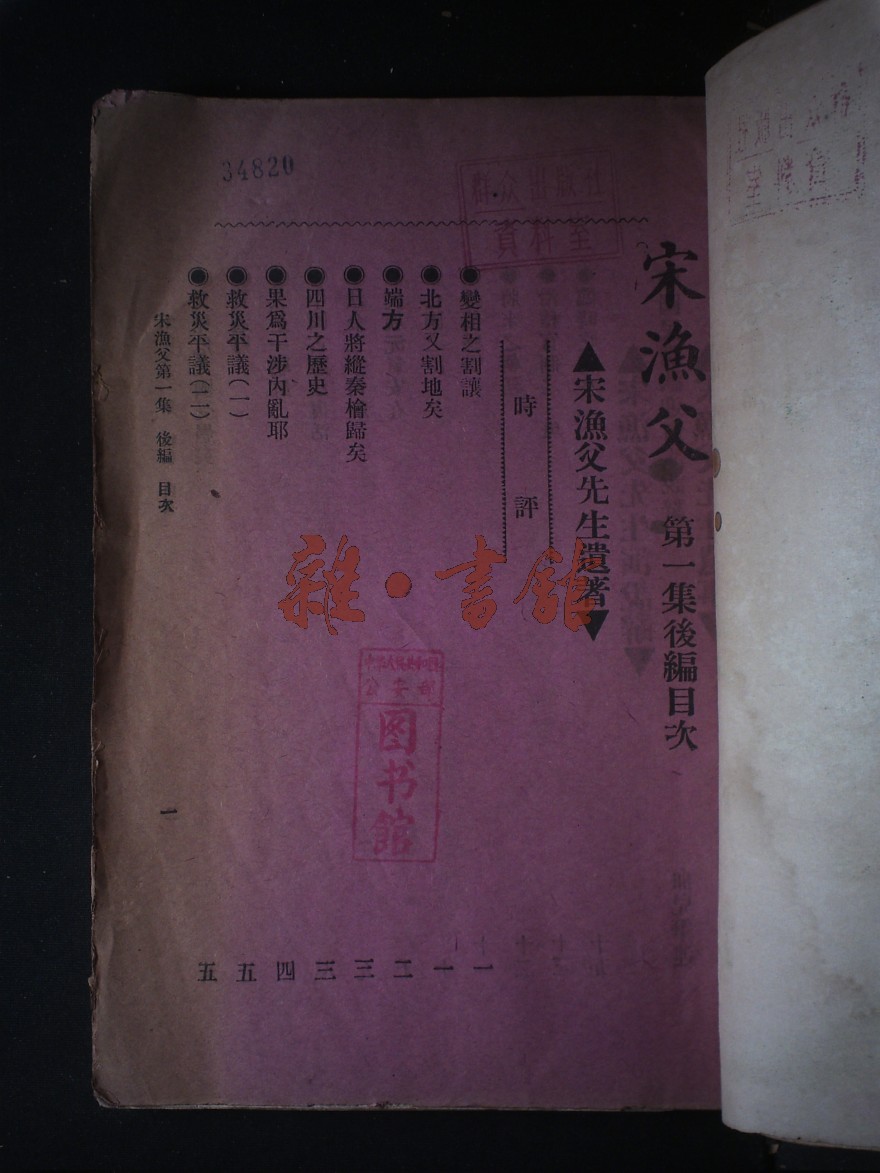 宋漁父 第一集後編目次
▲宋漁父先生遺著▼
時評
●變相之割讓 一
●北方又割地矣 一
●端方 二
●日人將縱秦檜歸矣 三
●四川之歷史 三
●果爲干涉內亂耶 四
●救災平議(一) 五
●救災平議(二) 五
宋漁父第一集 後編 目次 一
34820
群众出版社
資料室
公安部
图书館
雜·書館